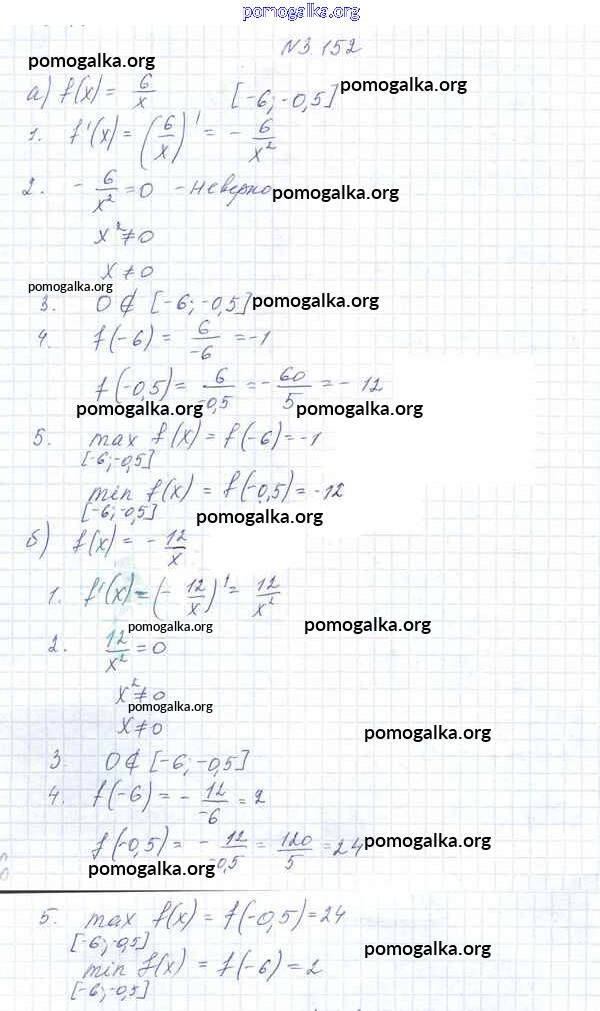 pomogalka.org
N3.152
pomogalka.org
а) f(x) = 6/x [-6; -0,5] pomogalka.org
1. f'(x) = (6/x)' = - 6/x²
2. - 6/x² = 0 - неверно pomogalka.org
x² ≠ 0
x ≠ 0
pomogalka.org
3. 0 ∉ [-6; -0,5] pomogalka.org
4. f(-6) = 6/-6 = -1
f(-0,5) = 6/-0,5 = - 60/5 = - 12
pomogalka.org pomogalka.org
5. max f(x) = f(-6) = -1
[-6; -0,5]
min f(x) = f(-0,5) = -12
[-6; -0,5]
pomogalka.org
б) f(x) = - 12/x
1. f'(x) = (- 12/x)' = 12/x²
pomogalka.org pomogalka.org
2. 12/x² = 0
x² ≠ 0
pomogalka.org
x ≠ 0
pomogalka.org
3. 0 ∉ [-6; -0,5]
4. f(-6) = - 12/-6 = 2
f(-0,5) = - 12/-0,5 = 120/5 = 24 pomogalka.org
pomogalka.org
5. max f(x) = f(-0,5) = 24
[-6; -0,5]
pomogalka.org
min f(x) = f(-6) = 2
[-6; -0,5]